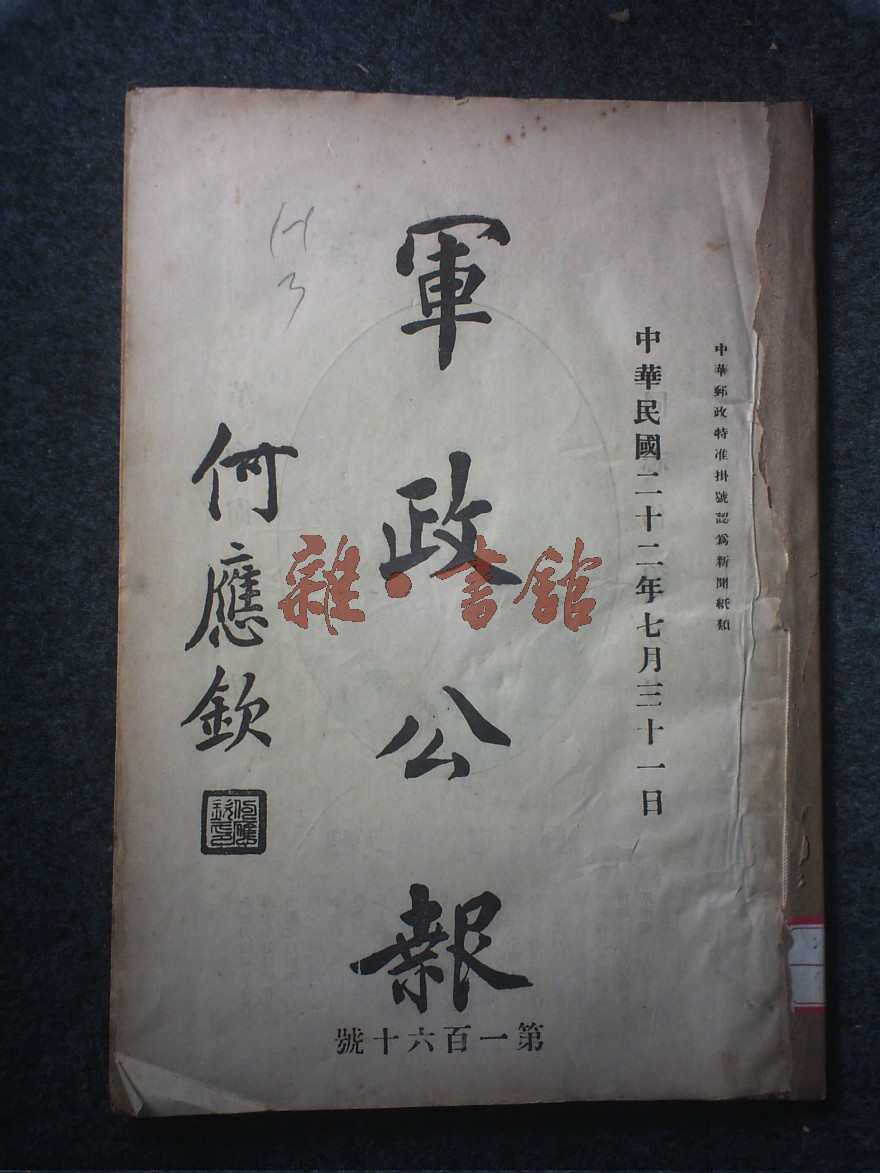 中華郵政特准掛號認爲新聞紙類
中華民國二十二年七月三十一日
軍政公報
第一百六十號
何應欽
雜·書館